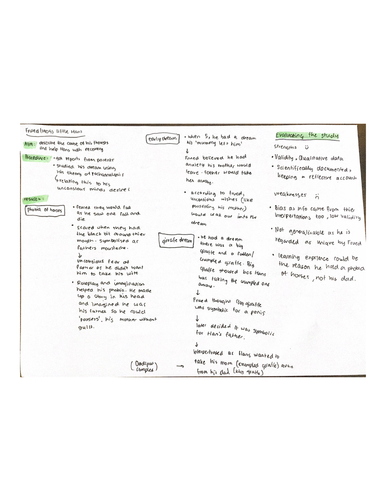 Freud (1909) little Hans
Aim: describe the cause of his phobias
and help Hans with recovering
Procedure: • got reports from father
• studied his dream using
his theory of psychoanalysis
↳ relating this to his
unconscious minds desires
results:
phobia of horses
• feared they would fall
as he saw one fall and
die
• scared when they had
the black bit around their
mouth - symbolised as
fathers moustache.
↓
unconscious fear of
father as he didn't want
him to take his wife
• Roleplay and imagination
helped his phobia. He made
up a story in his head
and imagined he was
his father so he could
'possess', his mother without
guilt.
(Oedipus
complex)
early dream
• when 5, he had a dream
his 'mummy left him'
↓
Freud believed he had
anxiety his mother would
leave - father would take
her away.
• according to Freud,
unconscious wishes (like
possessing his mother)
would leak out into the
dream
giraffe dream
• he had a dream
there was a big
giraffe and a
crumpled giraffe. Big
giraffe shouted bcs Hans
was taking the crumpled one
away.
↓
Freud thought the giraffe
was symbolic for a penis
↓
later decided it was symbolic
for Hans's father.
↓
interpreted as Hans wanted to
→ take his mom (crumpled giraffe) away
from his dad (big giraffe)
Evaluating the studie
strengths
• Validity, Qualitative data
• Scientifically documented,
keeping a reflective account
weaknesses
• Bias as info came from their
interpretations too, low validity
• Not generalisable as he is
regarded as unique by Freud
• learning experience could be
the reason he had a phobia
of horses, not his dad.